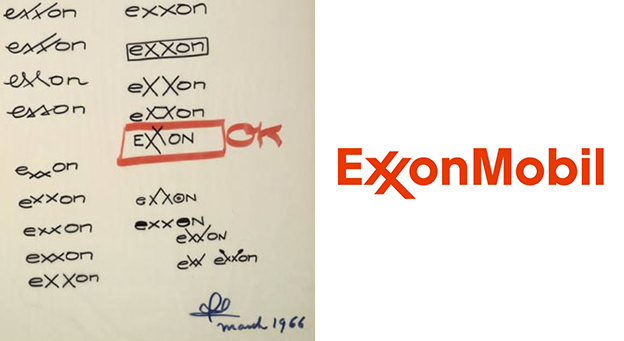 exxon
exxon
exxon
esson
exxon
exxon
exxon
exxon
exxon
exxon
exxon
exXon
exxon
EXXON OK
exxon
exxon
exxon
exx exxon
march 1966
ExxonMobil